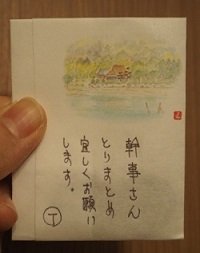 幹事さん
とりまとめ
宜しくお願い
します。
T